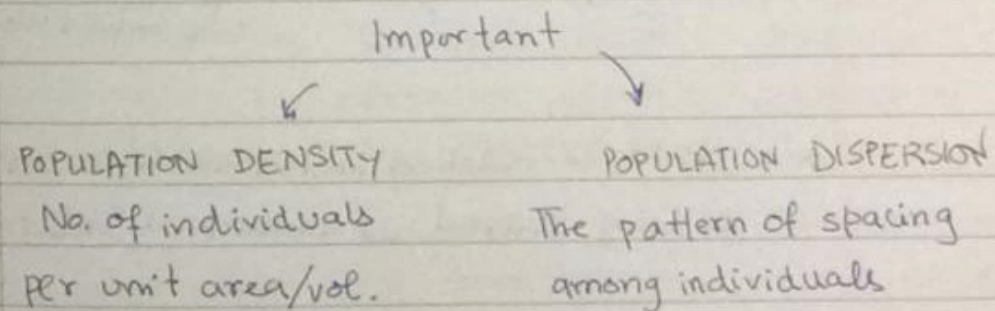 Important
POPULATION DENSITY
No. of individuals
per unit area/vol.
POPULATION DISPERSION
The pattern of spacing
among individuals